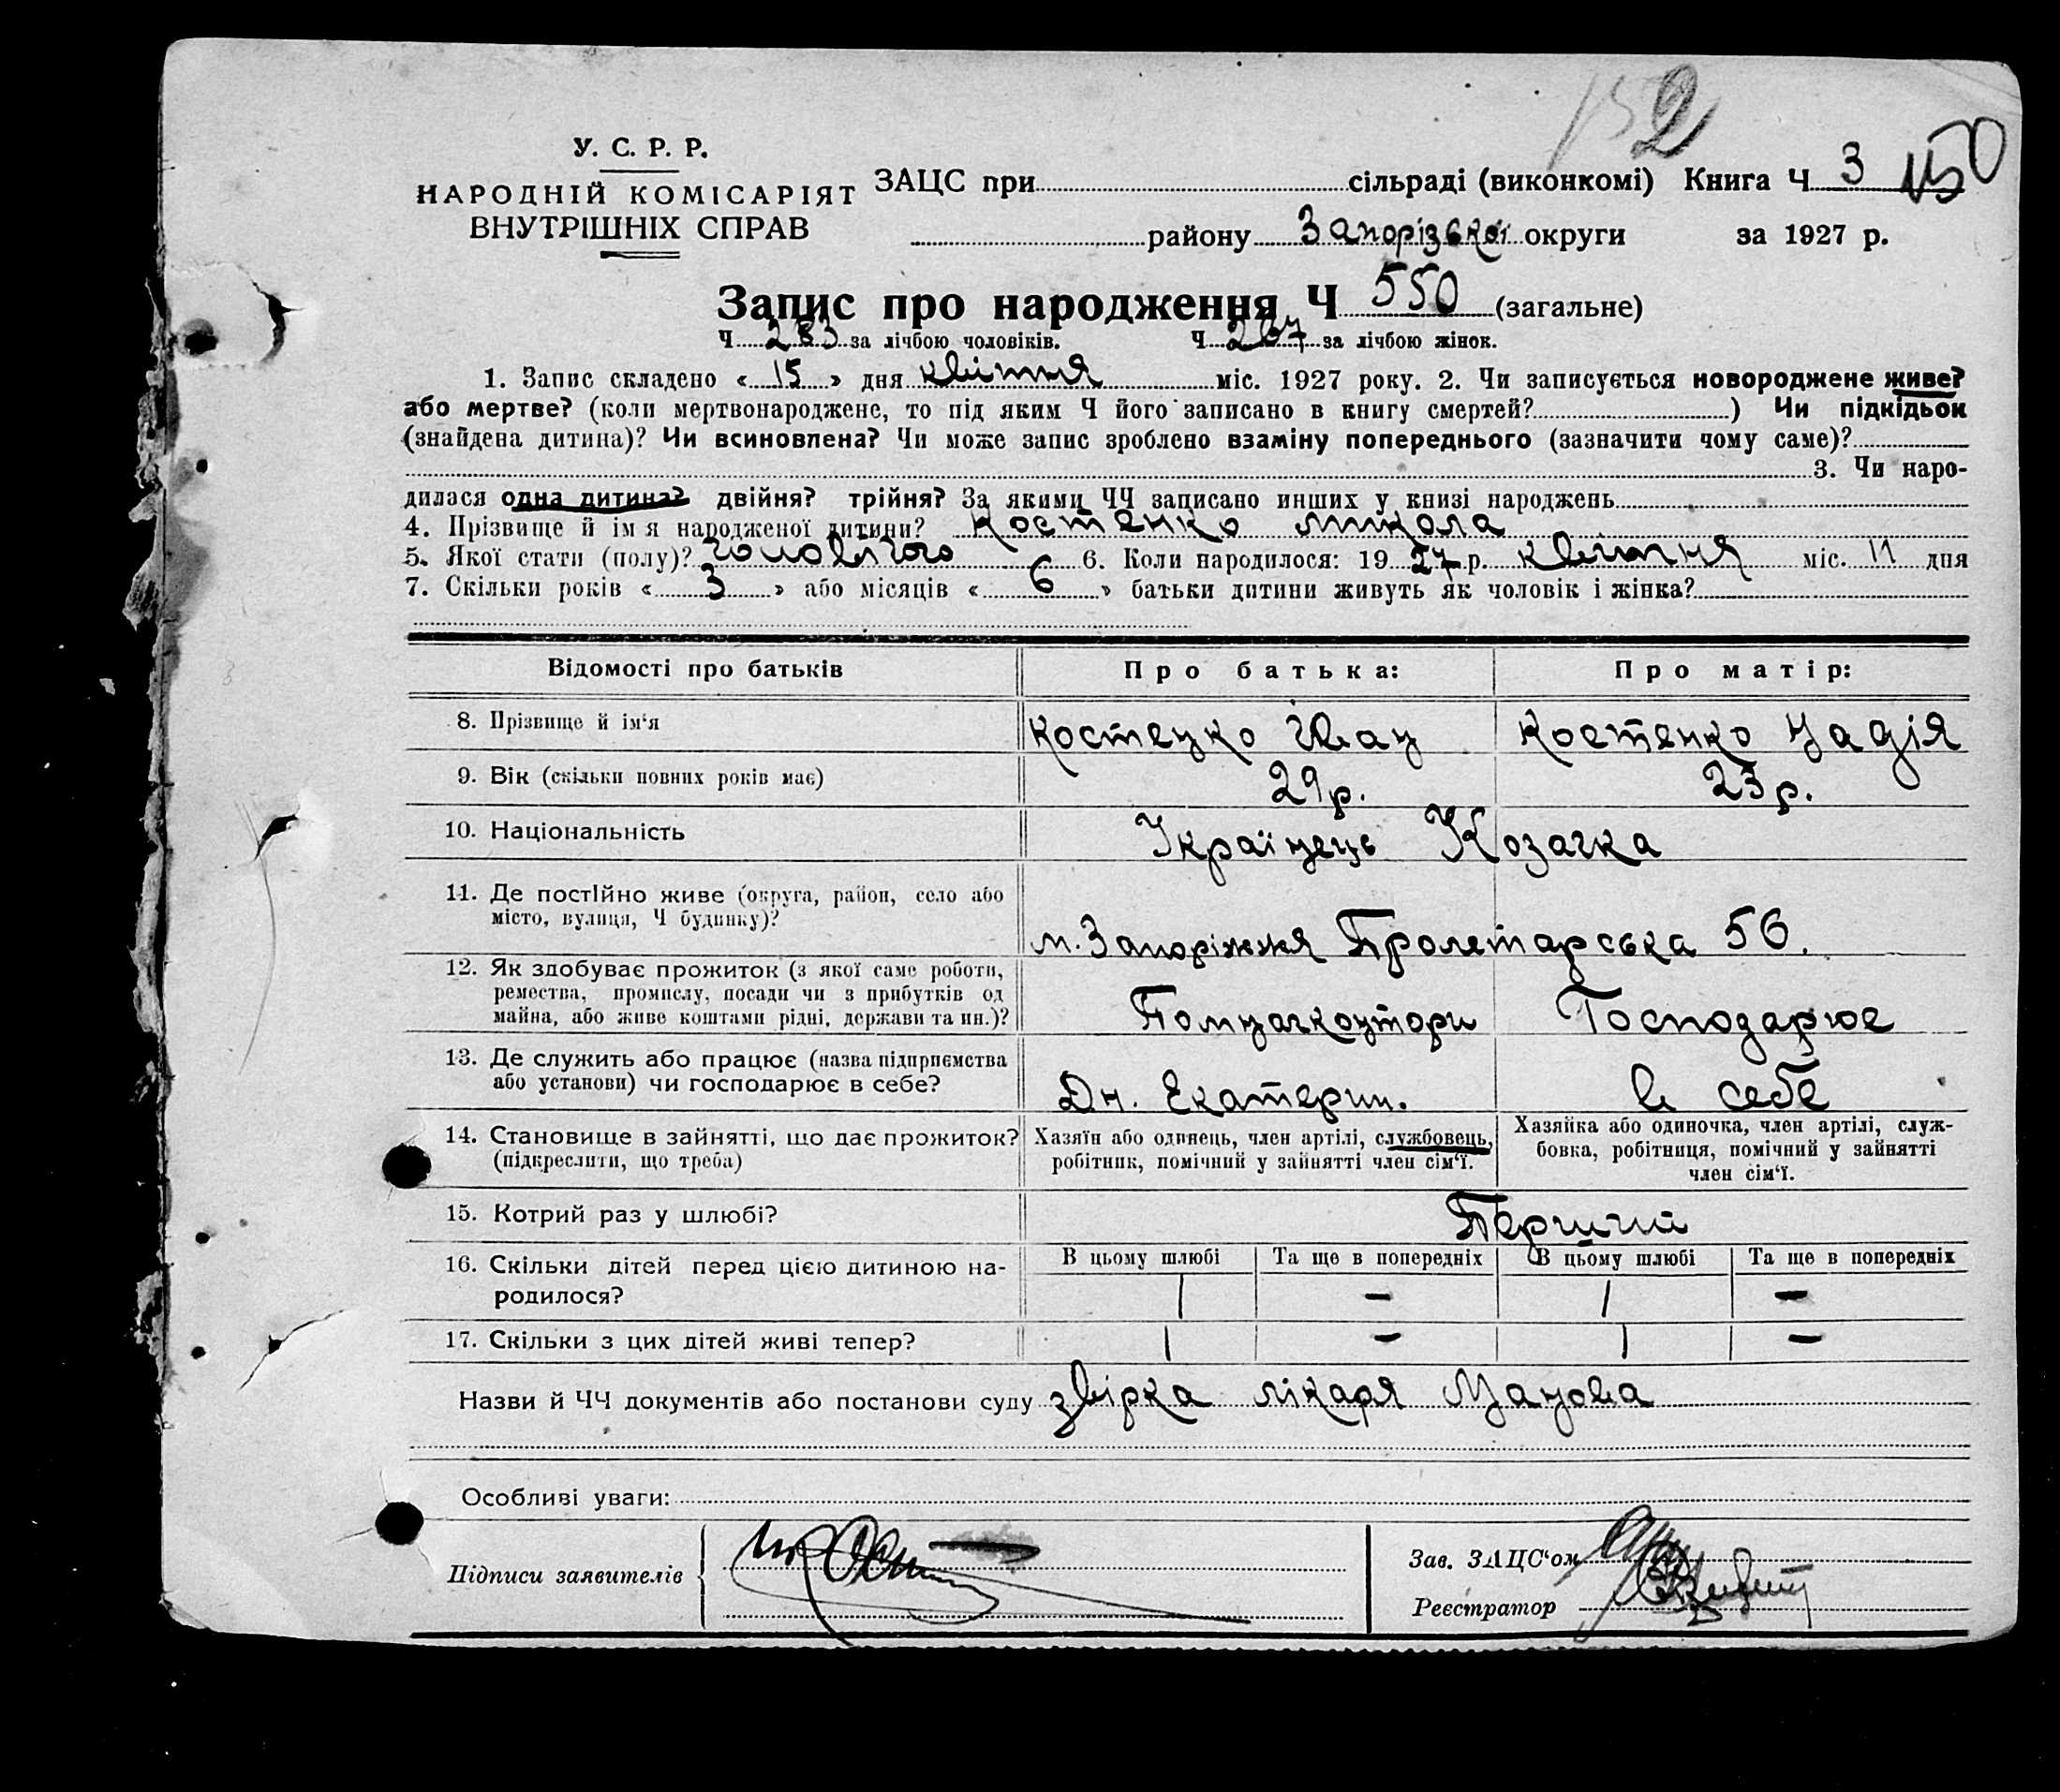 152
У. С. Р. Р.
НАРОДНІЙ КОМІСАРІЯТ
ВНУТРІШНІХ СПРАВ
ЗАЦС при сільраді (виконкомі) Книга Ч 3 150
району Запорізької округи за 1927 р.
Запис про народження Ч 550 (загальне)
Ч 283 за лічбою чоловіків. Ч 267 за лічбою жінок.
1. Запис складено « 15 » дня квітня міс. 1927 року. 2. Чи записується новороджене живе?
або мертве? (коли мертвонароджене, то під яким Ч його записано в книгу смертей? ) Чи підкідьок
(знайдена дитина)? Чи всиновлена? Чи може запис зроблено взаміну попереднього (зазначити чому саме)?
3. Чи наро-
дилася одна дитина? двійня? трійня? За якими ЧЧ записано инших у книзі народжень
4. Прізвище й ім я народженої дитини? Костенко Микола
5. Якої стати (полу)? чоловічого 6. Коли народилося: 19 27 р. квітня міс. 11 дня
7. Скільки років « 3 » або місяців « 6 » батьки дитини живуть як чоловік і жінка?
Відомості про батьків Про батька: Про матір:
8. Прізвище й ім'я Костенко Іван Костенко Надія
9. Вік (скільки повних років має) 29 р. 23 р.
10. Національність Українець Козачка
11. Де постійно живе (округа, район, село або
місто, вулиця, Ч будинку)?
м. Запоріжжя Пролетарська 56.
12. Як здобуває прожиток (з якої саме роботи,
ремества, промислу, посади чи з прибутків од
майна, або живе коштами рідні, держави та ин.)?
Помначконтори Господарює
13. Де служить або працює (назва підприємства
або установи) чи господарює в себе?
Дн. Екатерин. в себе
14. Становище в зайнятті, що дає прожиток?
(підкреслити, що треба)
Хазяїн або одинець, член артілі, службовець,
робітник, помічний у зайнятті член сім'ї.
Хазяйка або одиночка, член артілі, служ-
бовка, робітниця, помічний у зайнятті
член сім'ї.
15. Котрий раз у шлюбі? Перший
16. Скільки дітей перед цією дитиною на-
родилося?
В цьому шлюбі Та ще в попередніх В цьому шлюбі Та ще в попередніх
1 – 1 –
17. Скільки з цих дітей живі тепер? 1 – 1 –
Назви й ЧЧ документів або постанови суду звірка лікаря Манова
Особливі уваги:
Підписи заявителів
Зав. ЗАЦС'ом
Реєстратор